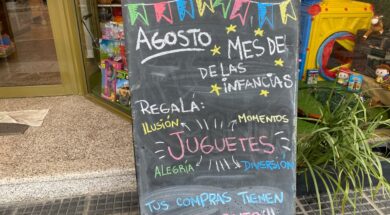 AGOSTO MES DE
DE LAS
INFANCIAS
REGALÁ:
ILUSIÓN MOMENTOS
JUGUETES
ALEGRÍA DIVERSIÓN
TUS COMPRAS TIENEN